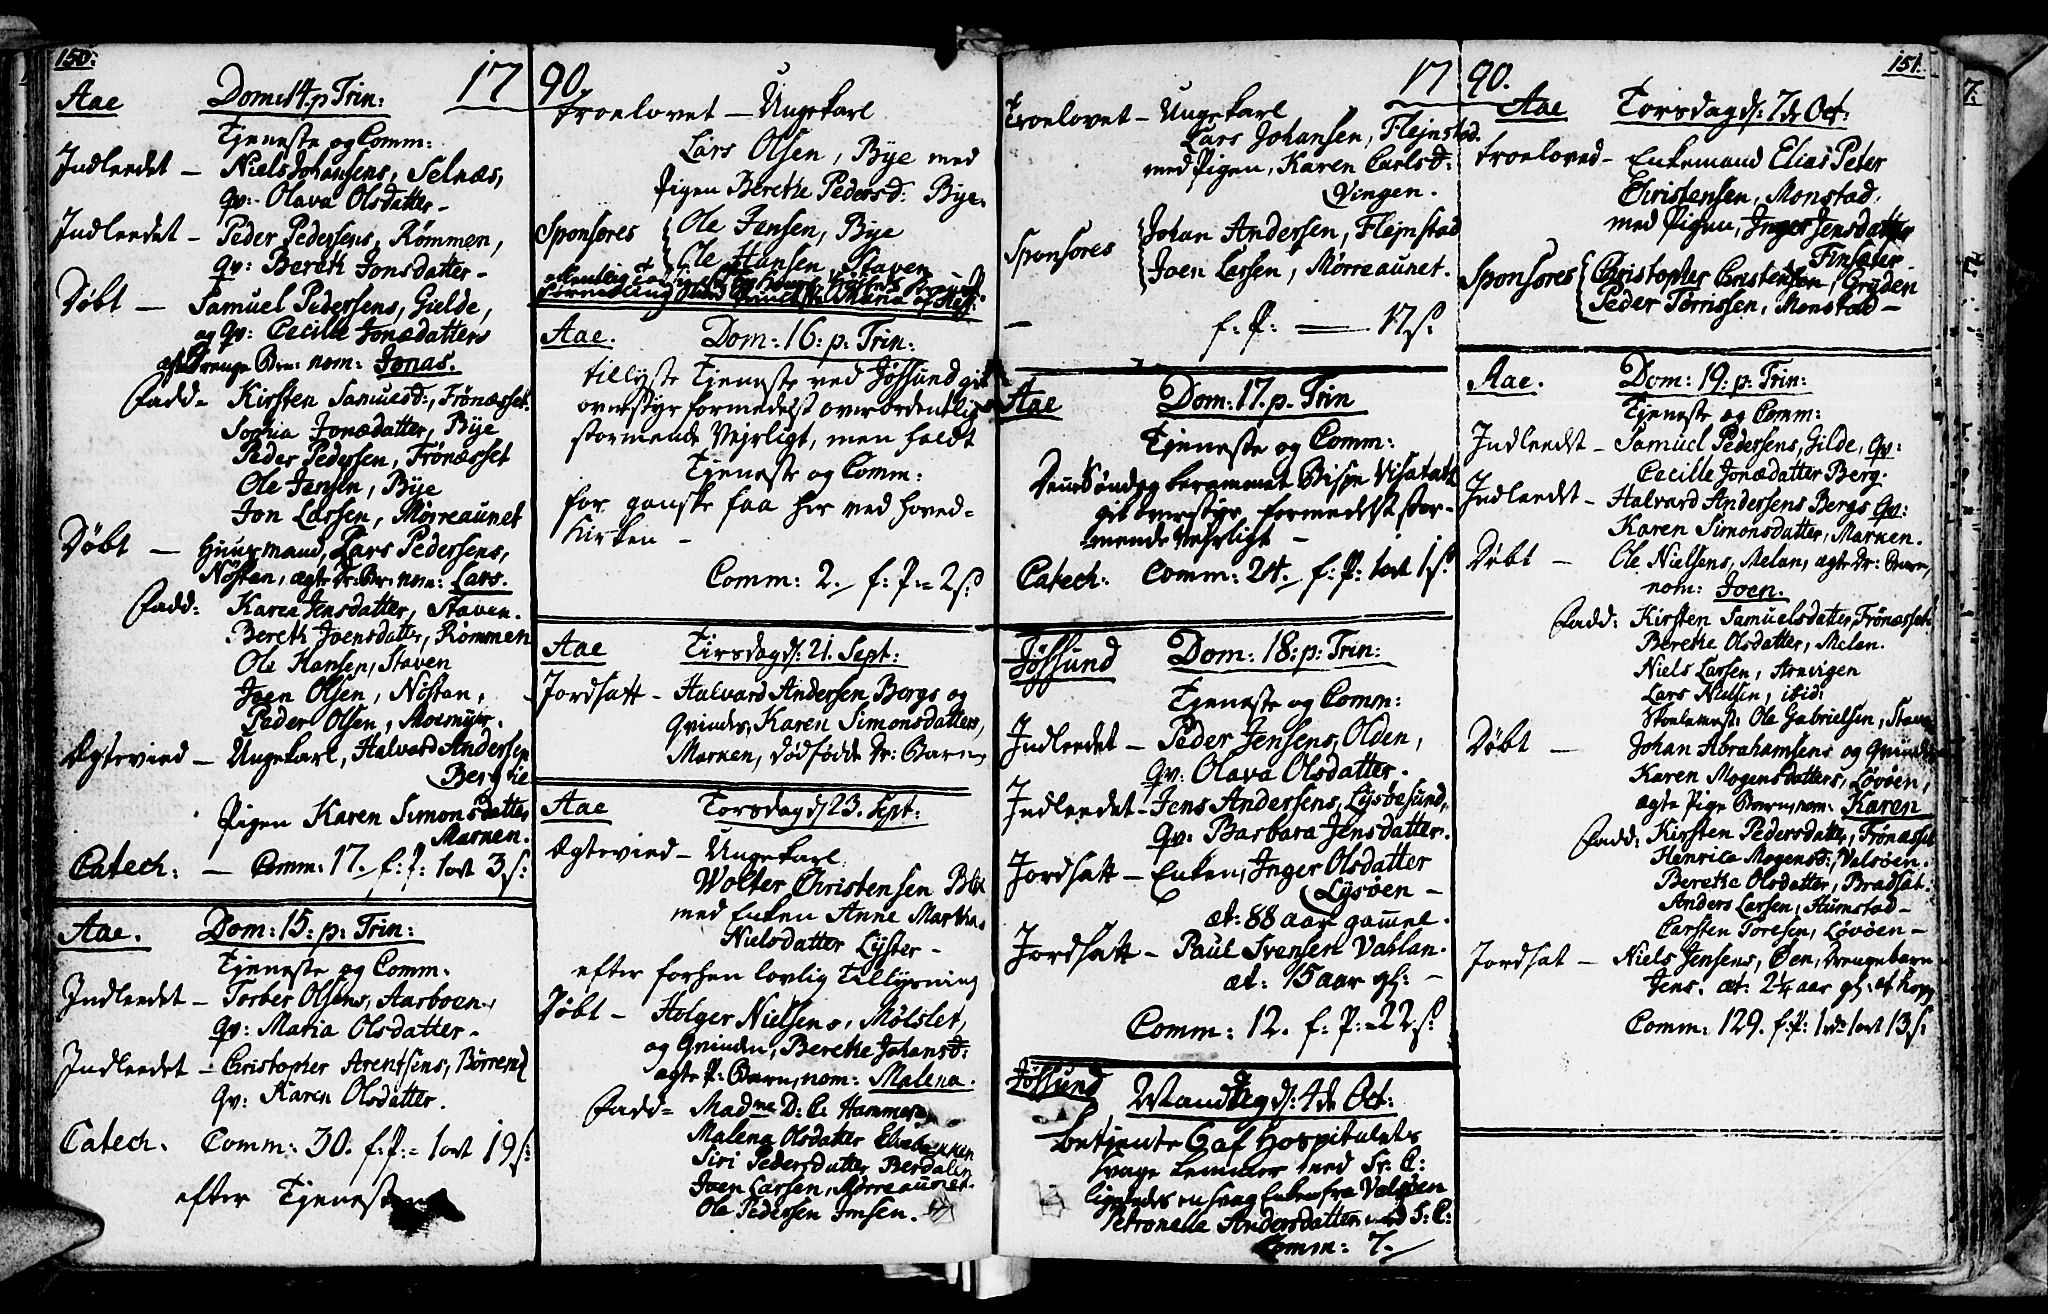 150.
1790.
Aae Dom: 14 p. Trin:
Tjeneste og Comm:
Indleedet – Niels Johansens, Selnæs,
qv:- Olava Olsdatter –
Indleedet – Peder Pedersens, Rømmen,
qv: Bereth Jonsdatter –
Døbt – Samuel Pedersens, Gielde,
og qv: Cecille Jonædatters
ægte Drenge Barn: nom: Jonas.
Fadd = Kirsten Samuelsd:, Frönæsset.
Sophia Jonædatter, Bye
Peder Pedersen, Frönæsset
Ole Jensen, Bye
Jon Larsen, Mørreaunet
Døbt – Huusmand, Lars Pedersens,
Nøstan, ægte Dr: Br: nom: Lars.
Fadd: Karen Jensdatter, Staven.
Bereth Joensdatter, Rømmen
Ole Hansen, Staven
Joen Olsen, Nøstan,
Peder Olsen, Moemyr.
Ægtevied – Ungekarl, Halvard Andersen
Berg
Pigen Karen Simonsdatter
Marnen.
Catech: – Comm: 17. f: P: 1 ort 3 s:
Aae. Dom: 15: p: Trin:
Tjeneste og Comm.
Indleedet – Torber Olsens, Aarboen.
qv: Maria Olsdatter –
Indleedet – Christopher Arentsens, Börren
qv: Karen Olsdatter.
Catech. Comm: 30. f: P: = 1 ort 19 s:
efter Tjenesten
troelovet – Ungekarl
Lars Olsen, Bye med
Pigen Berethe Pedersd: Bye.
Sponsores Ole Jensen, Bye
Ole Hansen, Staven
Aae. Dom: 16: p: Trin:
tillyste Tjeneste ved Jøssund gik
overstyr formedelst overordentlig
stormende Vejrligt, men holdt
Tjeneste og Comm:
for ganske faa her ved Hoved-
Kirken –
Comm: 2. f: P: = 2 s:
Aae Tirsdag d: 21. Sept:
Jordsatt – Halvard Andersen Bergs og
Qvindes, Karen Simonsdatters,
Marnen, dödfödde Dr: Barn
Aae Torsdag d 23. Sept:
Ægtevied – Ungekarl
Wolter Christensen
med Enken Anne Martha
Nielsdatter Lyster –
efter forhen lovlig Tillysning
Døbt – Holger Nielsens, Mölslet,
og Qvinden, Berethe Johansd:
ægte P: Barn, nom: Malena.
Fadd = Madme D: C: Hammer
Malena Olsdatter
Siri Pedersdatter Berdalen
Joen Larsen, Mörreaunet.
Ole Pedersen Imsen.
151.
1790.
Troelovet – Ungekarl
Lars Johansen, Flejnstad.
med Pigen, Karen Carlsd:
Vingen.
Sponsores Johan Andersen, Flejnstad
Joen Larsen, Mørreaunet.
– f: P: — 17 s:
Aae Dom: 17. p. Trin
Tjeneste og Comm:
Denne Søndag berammet Bispe Visatats
gik overstyr, formedelst stor-
mende Vejrligt –
Catech. Comm: 24. f: P: 1 ort 1 s:
Jøssund Dom: 18: p: Trin:
Tjeneste og Comm:
Indleedet – Peder Jensens, Olden,
qv: Olava Olsdatter.
Indleedet – Jens Andersens, Lysöesund,
qv: Barbara Jensdatter.
Jordsatt – Enken, Inger Olsdatter
Lysöen –
æt: 88 aar gamle.
Jordsatt – Paul Svensen Vallan.
æt: 15 aar gl: –
Comm: 12. f: P: = 22 s:
Jøssund Mandag d: 4de Oct:
betjente 6 af Hospitalets
svage Lemmer med Sr: C:
ligeledes en svag Enke fra Valsöen
Petronelle Andersdatter med S: C:
Comm: 7.
Aae Torsdag d: 7de Oct:
troeloved – Enkemand Elias Peter
Christensen, Monstad.
med Pigen, Inger Jensdatter
Finsæter
Sponsores Christopher Cristensen, Gryden
Peder Törrissen, Monstad –
Aae. Dom: 19: p: Trin:
Tjeneste og Comm:
Indleedet – Samuel Pedersens, Gilde, qv:
Cecille Jonædatter Berg.
Indleedet – Halvard Andersens Bergs qv:
Karen Simonsdatter, Marnen.
Døbt – Ole Nielsens, Melan, ægte Dr: Barn,
nom: Joen.
Fadd: Kirsten Samuelsdatter, Frönæsset
Berethe Olsdatter, Melan.
Niels Larsen, Arnvigen
Lars Nielsen, ibid:
Skolemest: Ole Gabrielsen, Staven
Døbt – Johan Abrahamsens og Qvindes
Karen Mogensdatters, Lövöen,
ægte Pige Barn, nom: Karen
Fadd: Kirsten Pedersdatter, Frönæsset
Henrica Mogensd:, Valsöen.
Berethe Olsdatter, Bradsat.
Anders Larsen, Humstad –
Carsten Toresen, Lövöen –
Jordsat – Niels Jensens, Öen, Drengebarn
Jens. æt: 2 1/4 aar gl. af Kopp
Comm: 129. f: P: 1 rdr 1 ort 13 s: